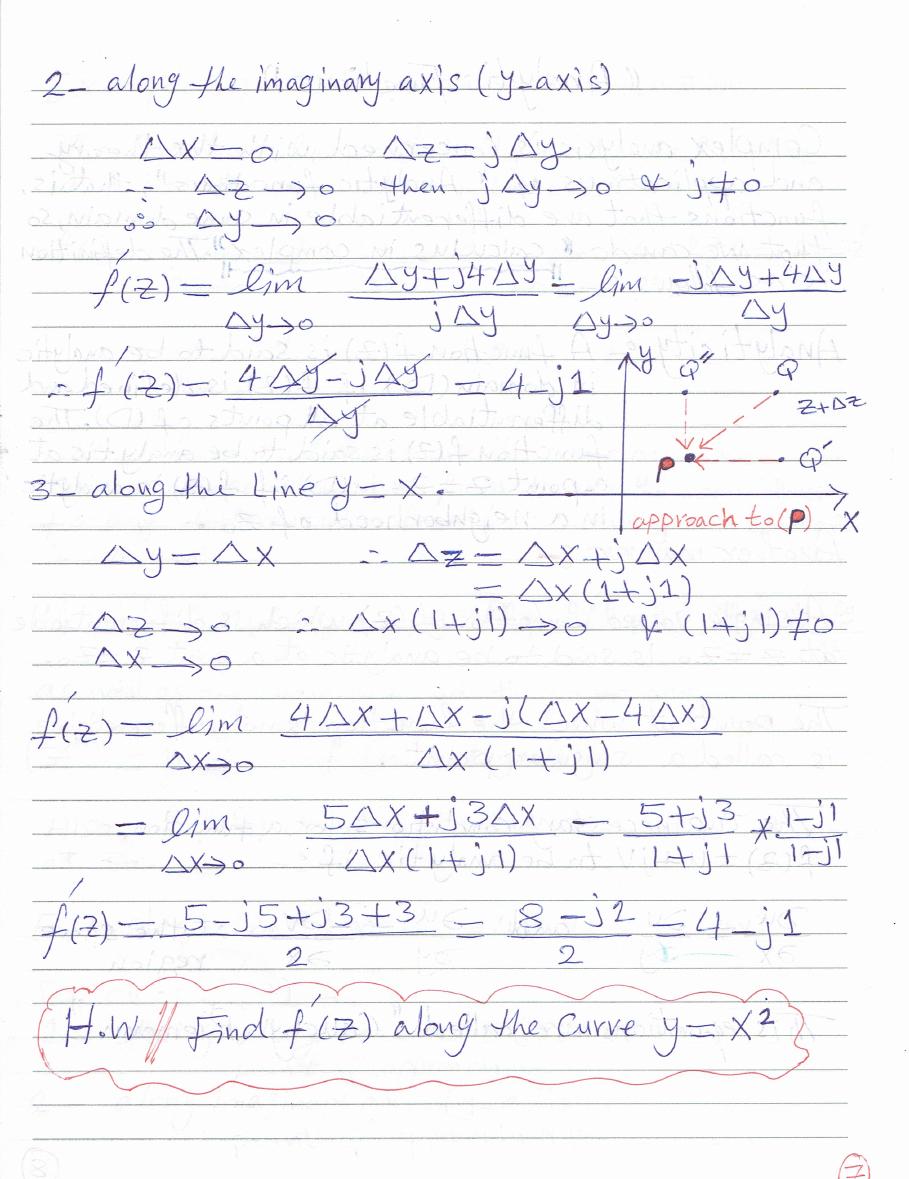 2- along the imaginary axis (y-axis)
Δx = 0 Δz = jΔy
∵ Δz → 0 then jΔy → 0 & j ≠ 0
∴ Δy → 0
f′(z) = lim Δy→0 (Δy + j4Δy)/(jΔy) = lim Δy→0 (-jΔy + 4Δy)/(Δy)
∴ f′(z) = (4Δy - jΔy)/(Δy) = 4 - j1
y
Q″ Q
z+Δz
P Q′
x
approach to (P)
3- along the Line y = x.
Δy = Δx ∴ Δz = Δx + jΔx
= Δx(1+j1)
Δz → 0 ∴ Δx(1+j1) → 0 & (1+j1) ≠ 0
Δx → 0
f′(z) = lim Δx→0 (4Δx + Δx - j(Δx - 4Δx))/(Δx(1+j1))
= lim Δx→0 (5Δx + j3Δx)/(Δx(1+j1)) = (5+j3)/(1+j1) * (1-j1)/(1-j1)
f′(z) = (5 - j5 + j3 + 3)/2 = (8 - j2)/2 = 4 - j1
H.W // Find f′(z) along the Curve y = x²
7